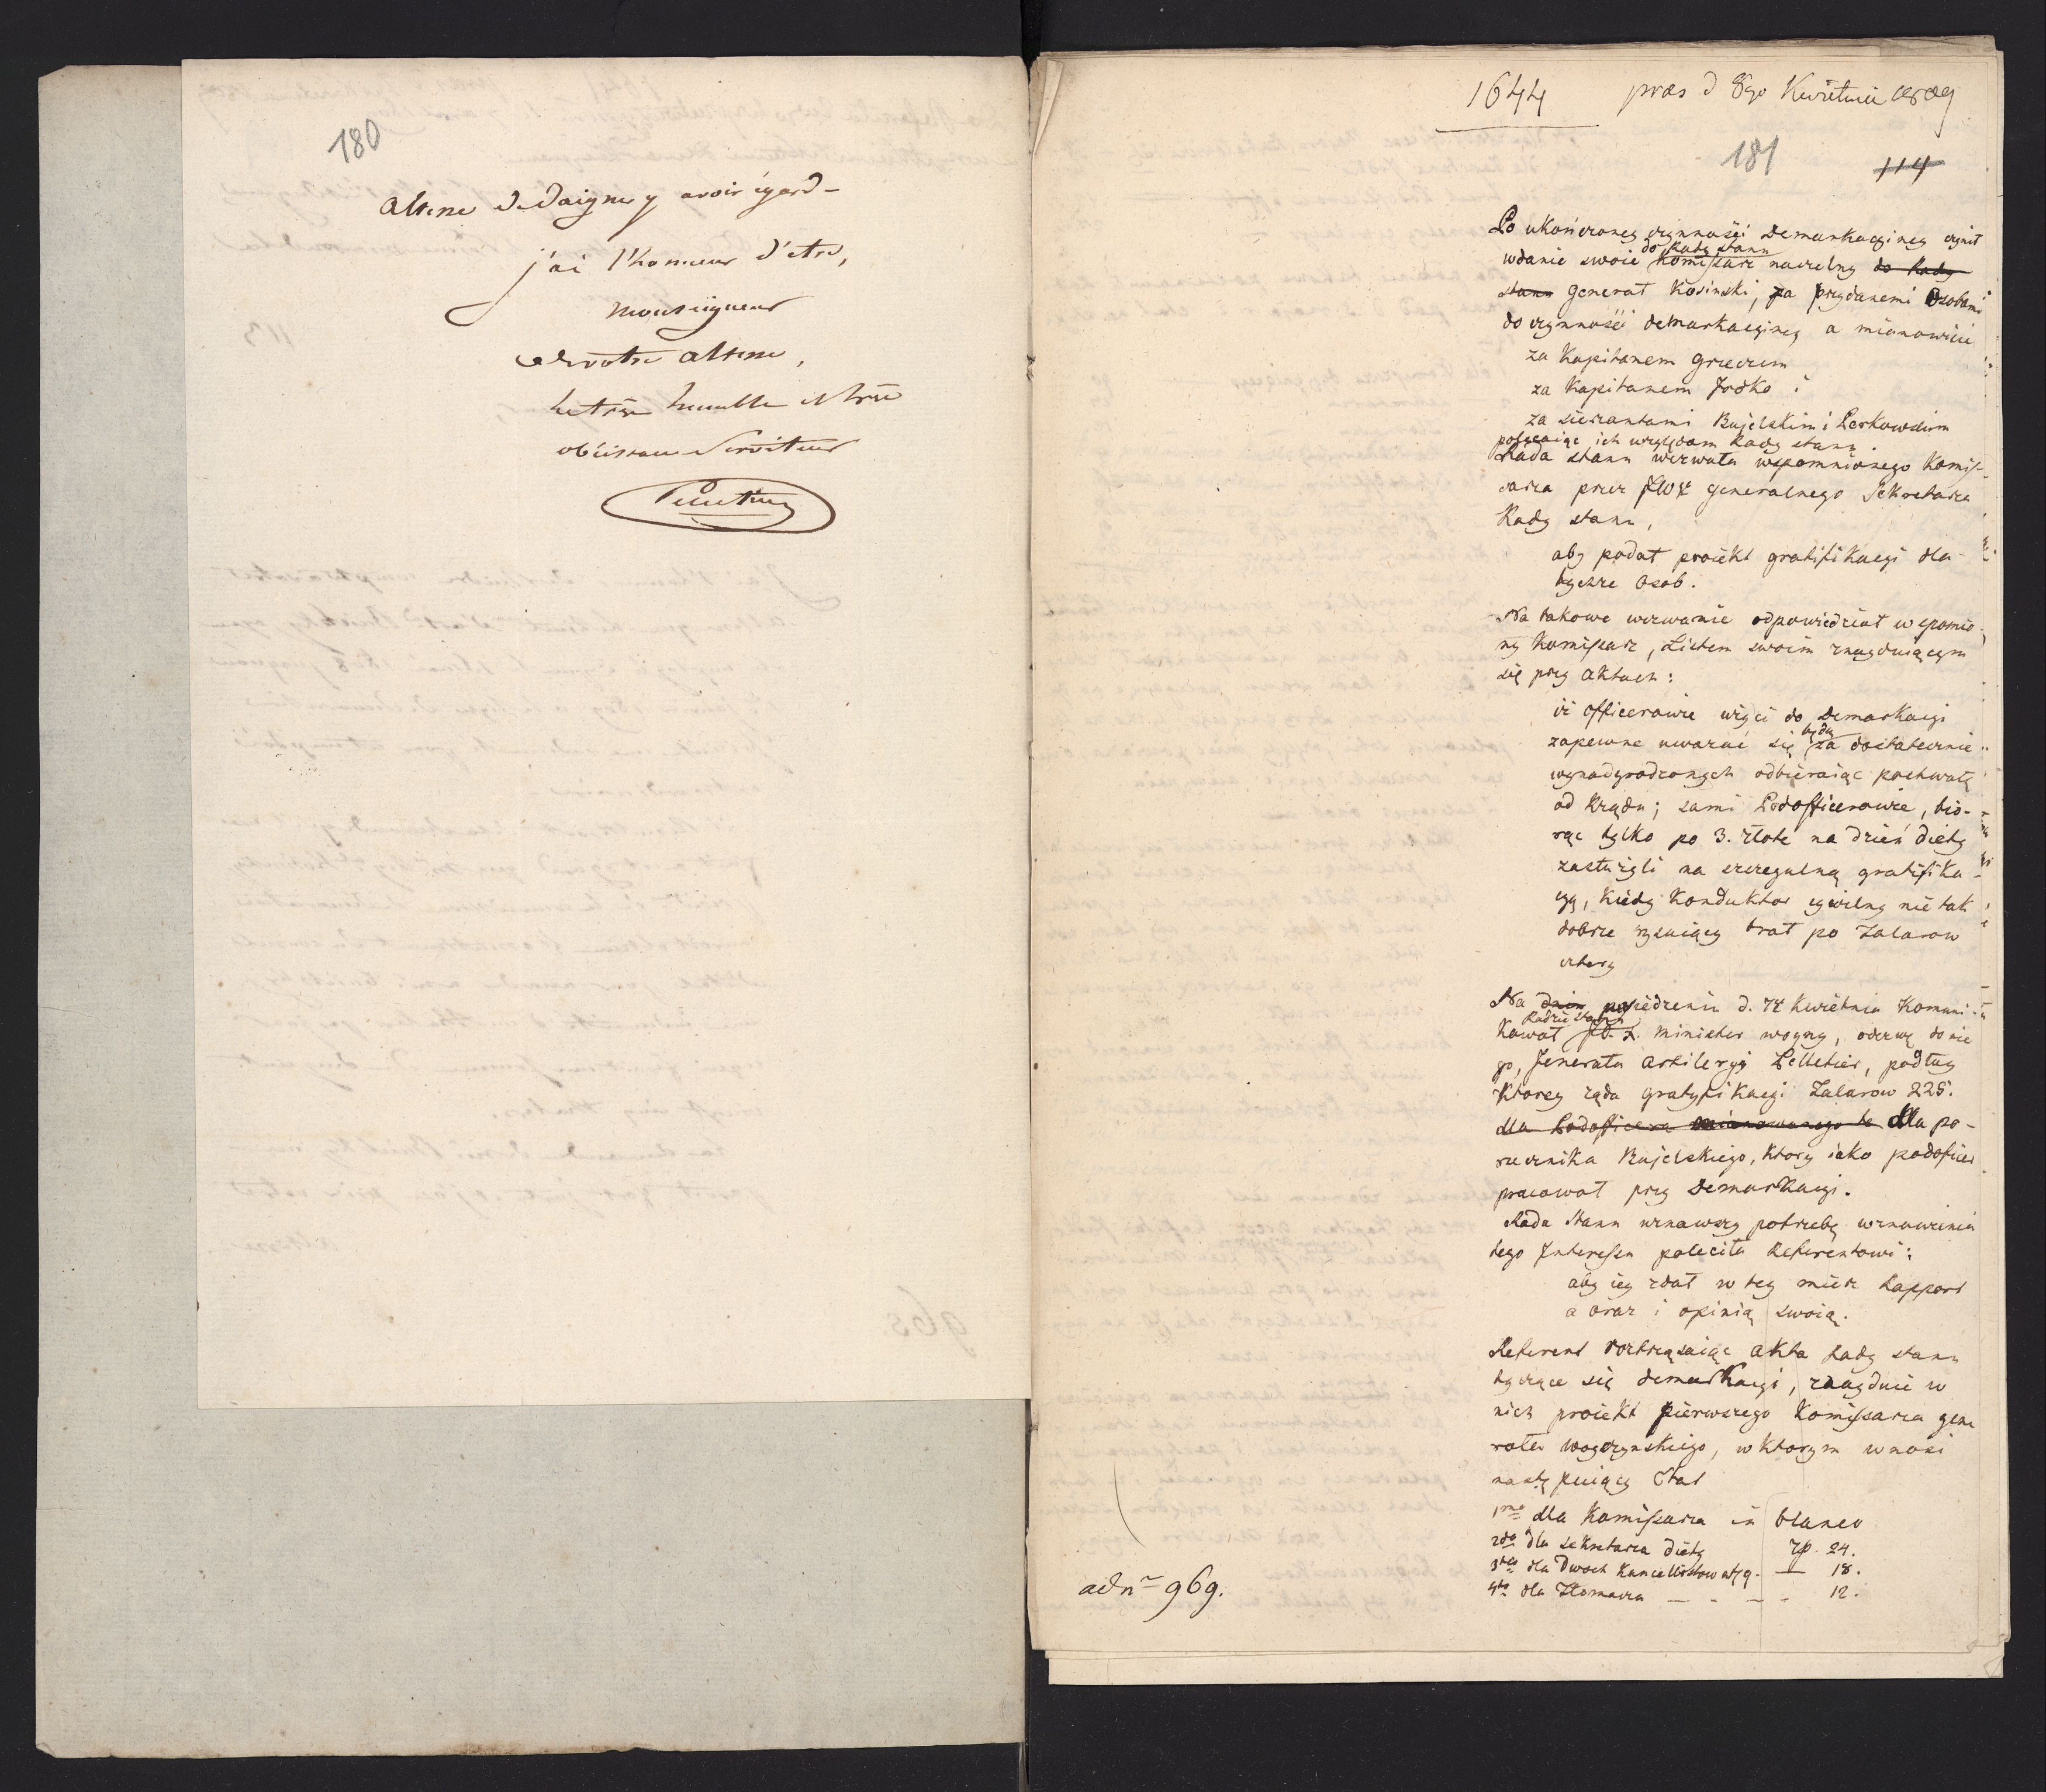 180
altesse de daigner y avoir égard –
j'ai l'honneur d'etre,
Monseigneur
de votre altesse,
le très humble et très
obéissant Serviteur
Pelletier
1644 praes d 8go Kwietnia 1809
181 114
Po ukończoney czynności Demarkacyiney czynił
do Rady Stanu
wdanie swoie Komissarz naczelny do Rady
Stanu Generał Kosinski, za przydanemi Osobami
do czynności demarkacyiney a mianowicie
za Kapitanem Grecem
za Kapitanem Jodko i
za sierżantami Bujelskim i Perkowskim
polecaiąc ich względom Rady Stanu
Rada Stanu wezwała wspomnionego Komis-
sarza przez JWJ Generalnego Sekretarza
Rady Stanu,
aby podał proiekt gratifikacyi dla
tychże Osob.
Na takowe wezwanie odpowiedział wspomio-
ny Komissarz, Listem swoim znayduiącym
się przy Aktach:
iż Officerowie użyci do Demarkacyi
będą
zapewne uważać się za dostatecznie
wynadgrodzonych odbieraiąc pochwałę
od Rządu; sami Podofficerowie, bio-
rąc tylko po 3. złote na dzień diety
zasłużyli na szczegulną gratifika-
cyą, kiedy Konduktor cywilny nie tak
dobrze rysuiący brał po Talarow
cztery
Na dniu posiedzeniu d. 14 Kwietnia Komuni-
Radzie Stanu
kował JO. X. Minister woyny, odezwę do nie
go, Jenerała Artileryi Pelletier, podług
Ktorey żąda gratyfikacyi Talarow 225.
dla Podofficera mianowanego to dla po-
rucznika Bujelskiego, ktory iako podoficer
pracował przy Demarkacyi.
Rada Stanu uznawszy potrzebę wznowienia
tego Interessu poleciła Referentowi:
aby iey zdał w tey mierze Rapport
a oraz i opinią swoią.
Referent roztrząsaiąc Akta Rady Stanu
tyczące się demarkacyi, znayduie w
nich proiekt pierwszego Komissarza gene
rała Woyczynskiego, w ktorym wnosi
następuiący Etat
1mo dla Komissarza in blanco
2do dla Sekretarza diety zp. 24.
3tio dla Dwoch Kancellistow à 9. — 18.
4to dla Tłomacza — - — - 12.
ad nr 969.